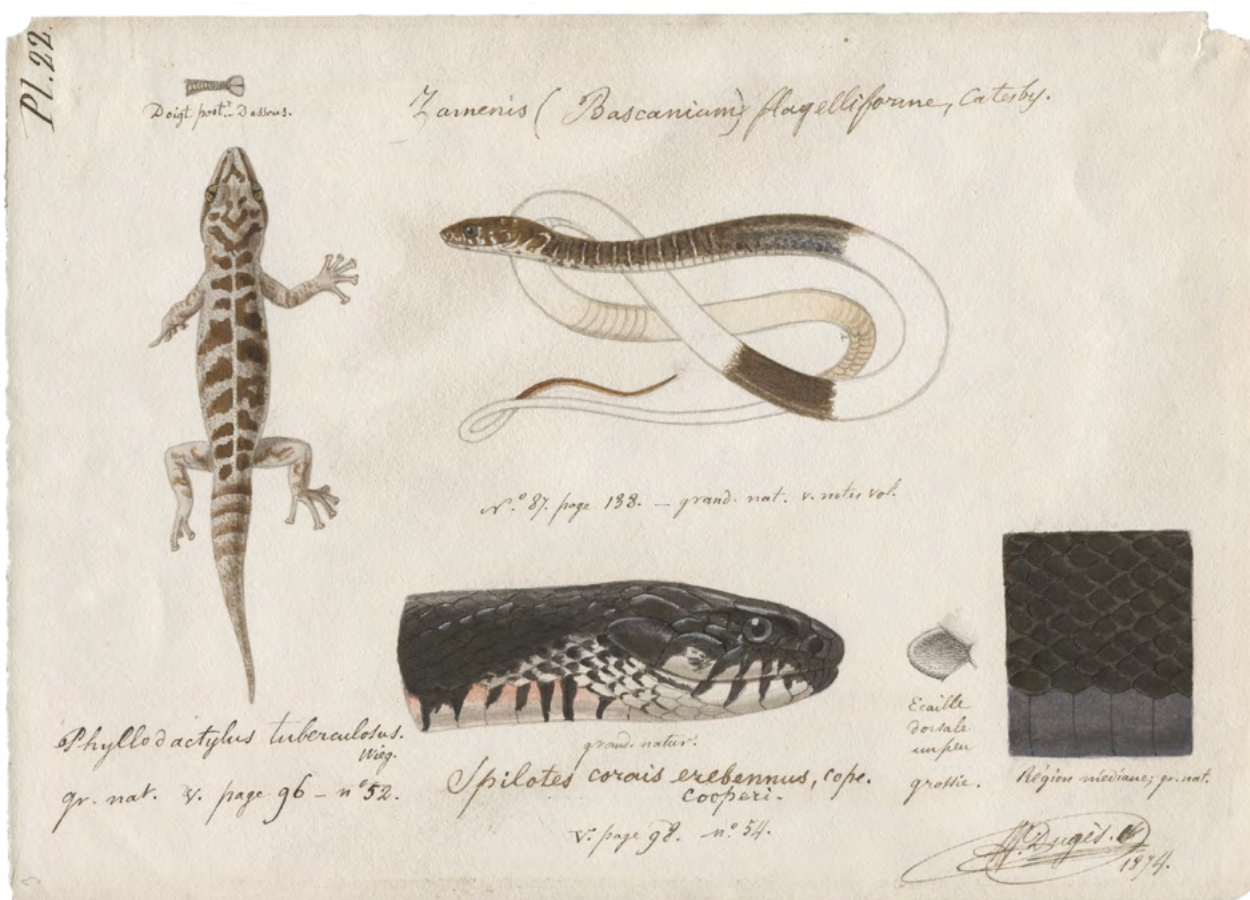 Pl. 22.
Doigt postr. Dessous.
Zamenis (Bascanium) flagelliforme, Catesby.
N.º 87. page 138. — grand. nat. v. notes vol.
Phyllodactylus tuberculosus.
Wieg.
gr. nat. V. page 96 — nº 52.
grand. natur.
Spilotes corais erebennus, cope.
cooperi.
V. page 98. nº 54.
Ecaille
dorsale
un peu
grossie.
Région mediane; gr. nat.
Dugès.
1874.